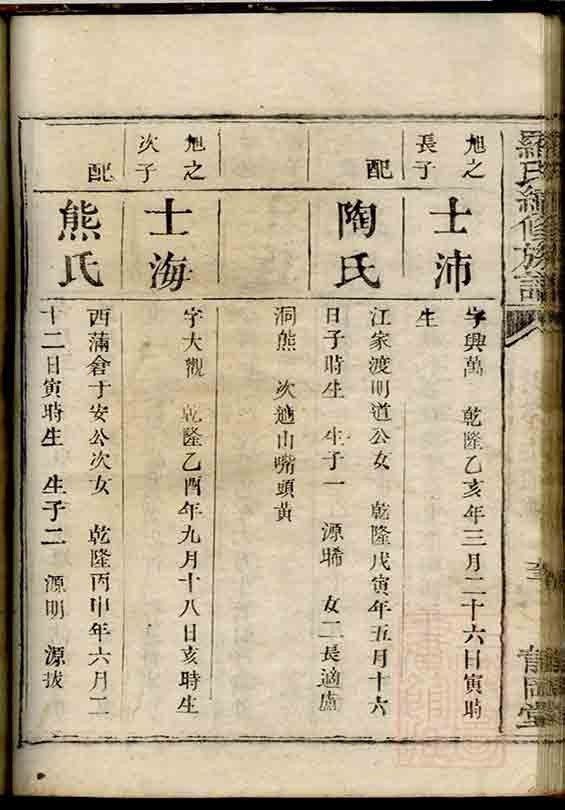 羅氏續修族譜
旭之長子
士沛
字興萬 乾隆乙亥年三月二十六日寅時
生
配
陶氏
江家渡明道公女 乾隆戊寅年五月十六
日子時生 生子一 源晞 女二長適廬
洞熊 次適山嘴頭黃
旭之次子
士海
字大觀 乾隆乙酉年九月十八日亥時生
配
熊氏
西蒲倉于安公次女 乾隆丙申年六月二
十二日寅時生 生子二 源明 源拔